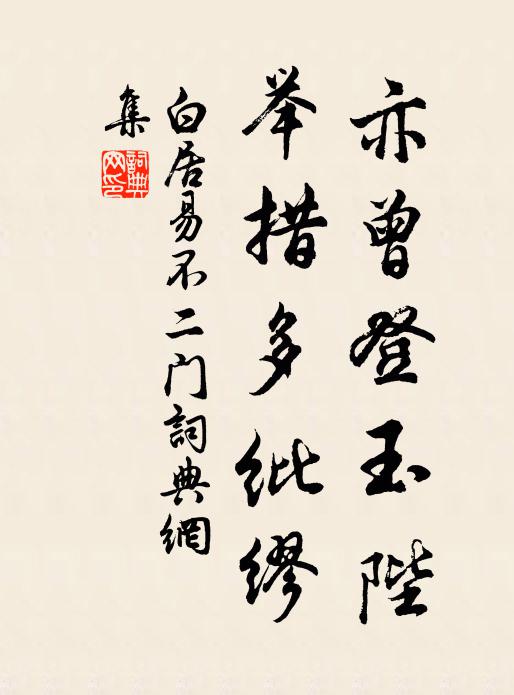 亦曾登玉陛
举措多纰缪
白居易不二门词典網
集
詞典網印